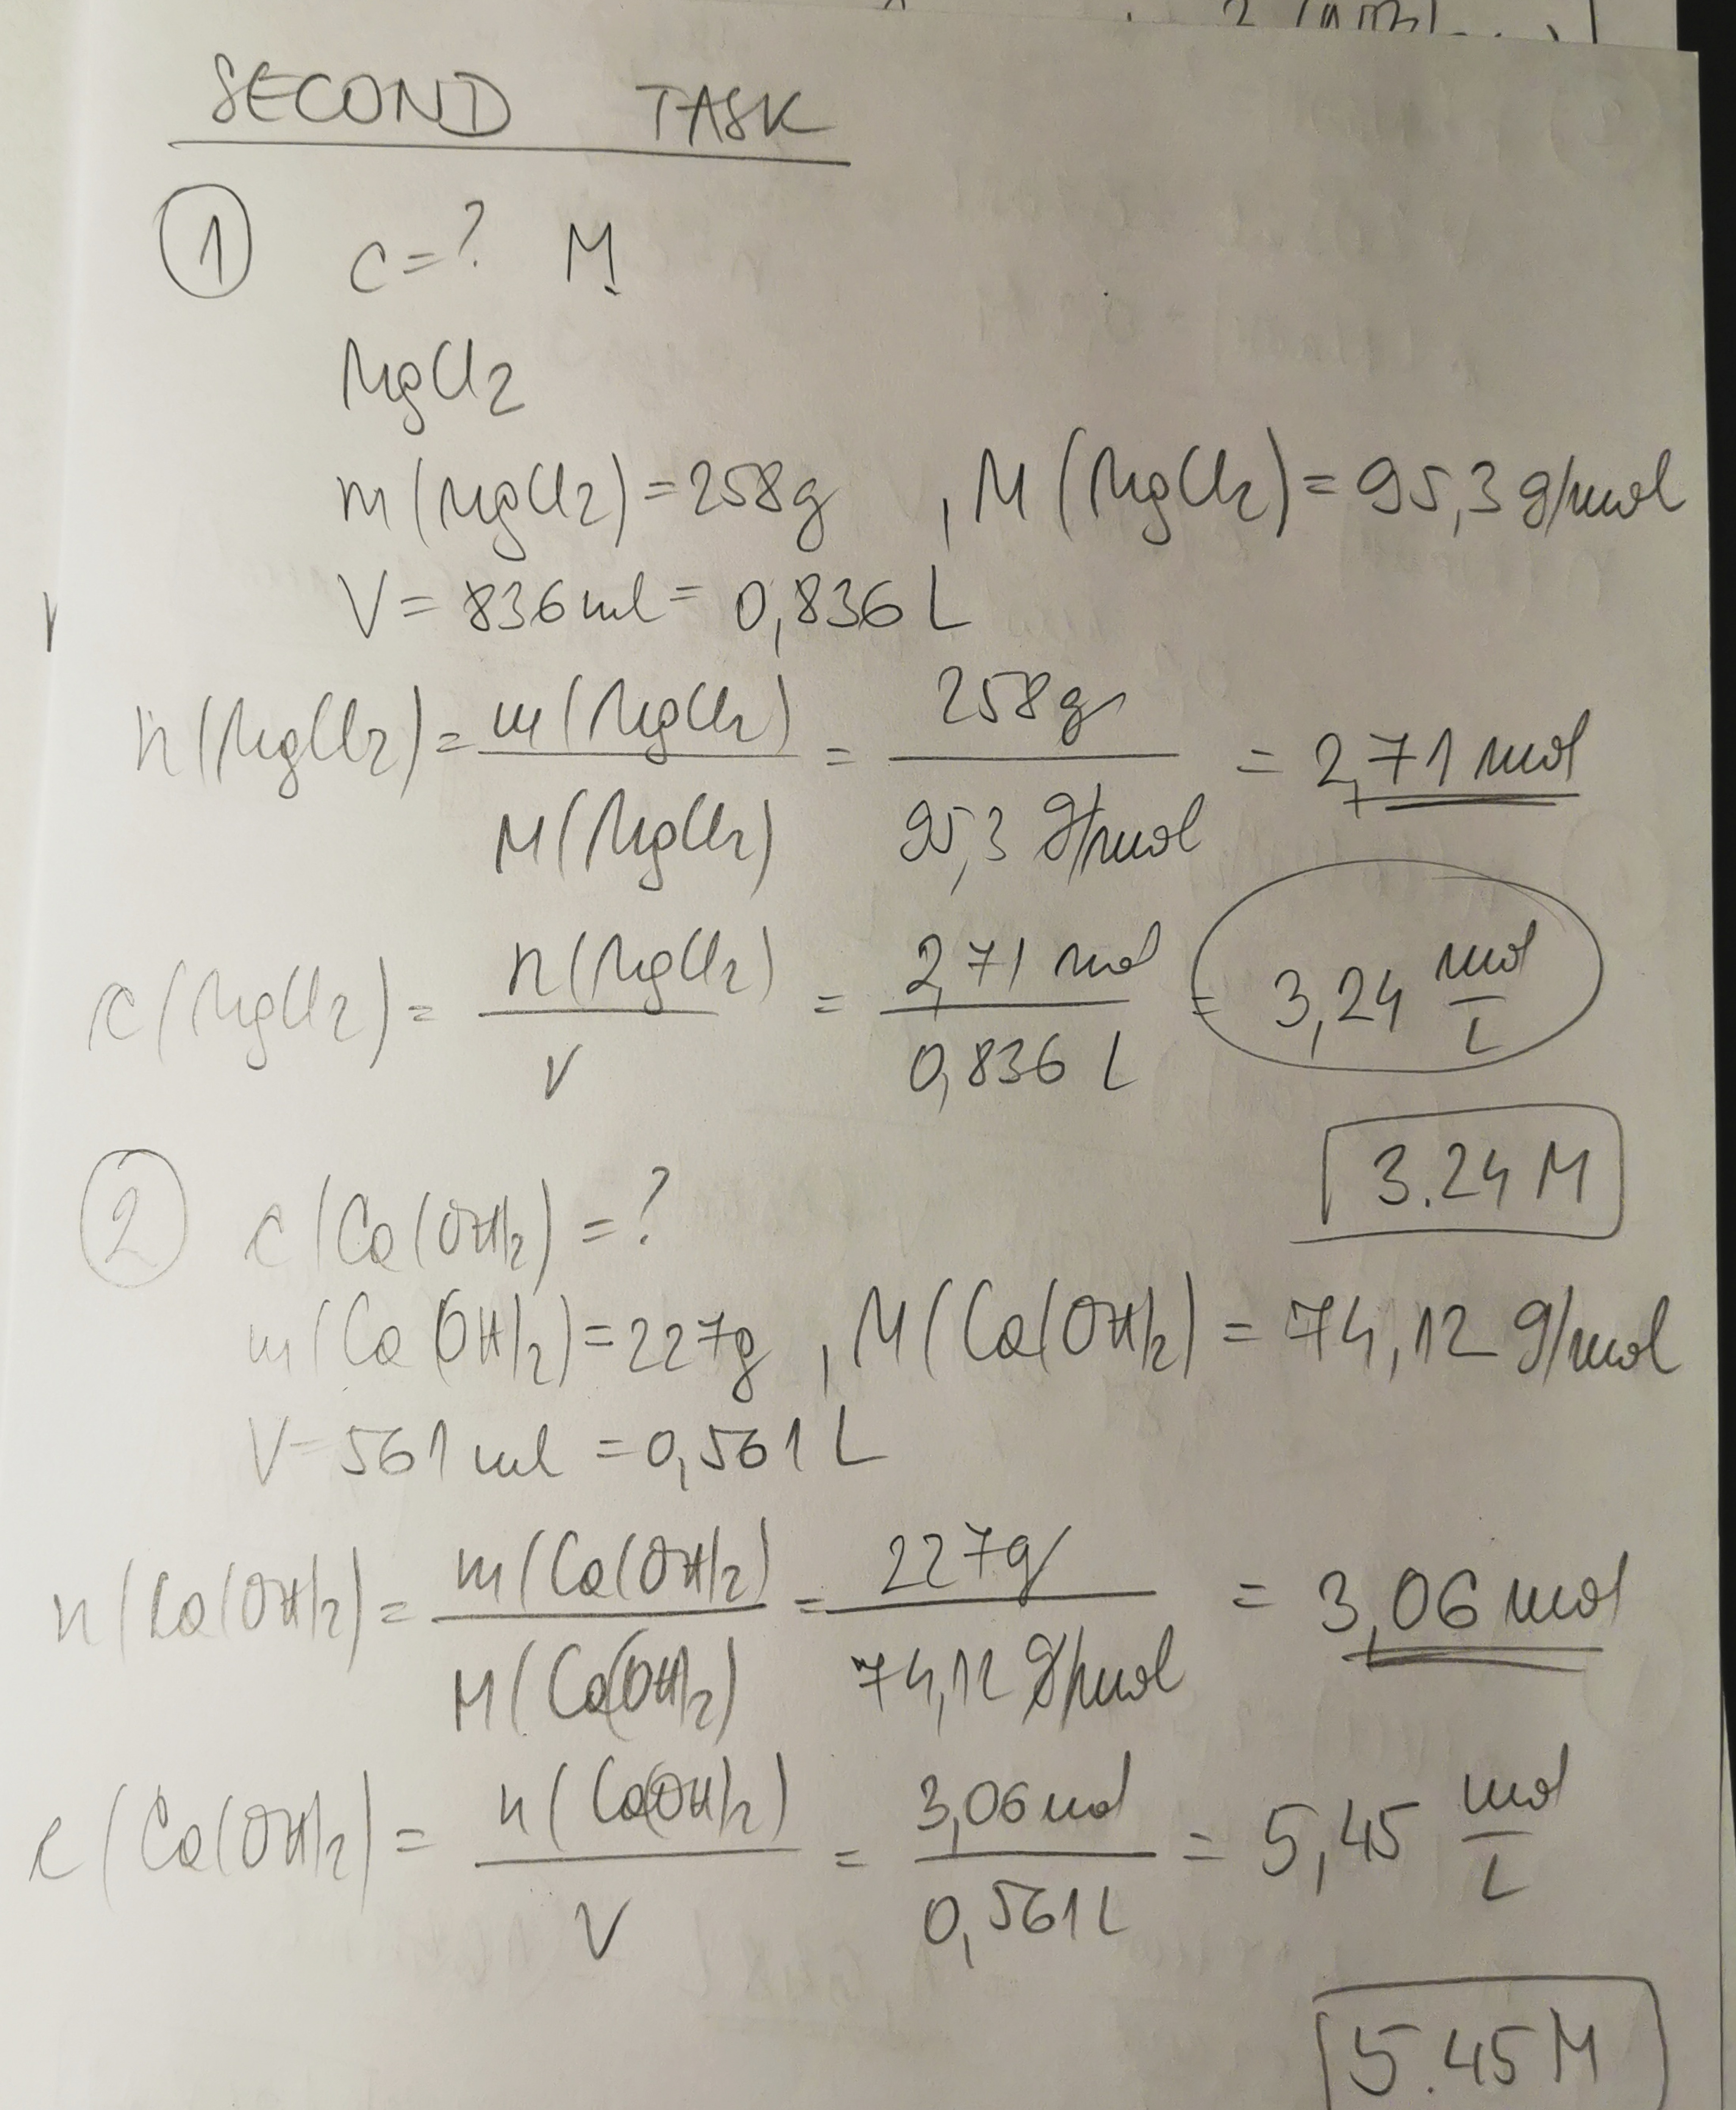 SECOND TASK
1 c=? M
MgCl2
m(MgCl2)=258g , M(MgCl2)=95,3g/mol
V=836ml=0,836L
n(MgCl2)= m(MgCl2)/M(MgCl2) = 258g/95,3g/mol = 2,71mol
c(MgCl2)= n(MgCl2)/V = 2,71mol/0,836L = 3,24 mol/L
3.24M
2 c(Ca(OH)2)=?
m(Ca(OH)2)=227g , M(Ca(OH)2)=74,12g/mol
V=561ml=0,561L
n(Ca(OH)2)= m(Ca(OH)2)/M(Ca(OH)2) = 227g/74,12g/mol = 3,06mol
c(Ca(OH)2)= n(Ca(OH)2)/V = 3,06mol/0,561L = 5,45 mol/L
5.45M